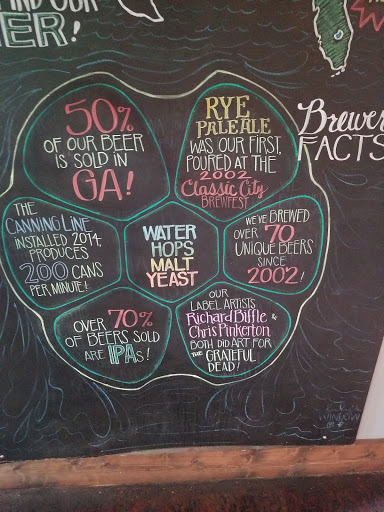 FIND OUR
ER!
Brewer
FACTS
50%
OF OUR BEER
IS SOLD IN
GA!
RYE
PALE ALE
WAS OUR FIRST,
POURED AT THE
2002
Classic City
BREWFEST
THE
CANNING LINE
INSTALLED 2014,
PRODUCES
200 CANS
PER MINUTE!
WATER
HOPS
MALT
YEAST
WE'VE BREWED
OVER 70
UNIQUE BEERS
SINCE
2002!
OVER 70%
OF BEERS SOLD
ARE IPAs!
OUR
LABEL ARTISTS
Richard Biffle &
Chris Pinkerton
BOTH DID ART FOR
THE GRATEFUL
DEAD!